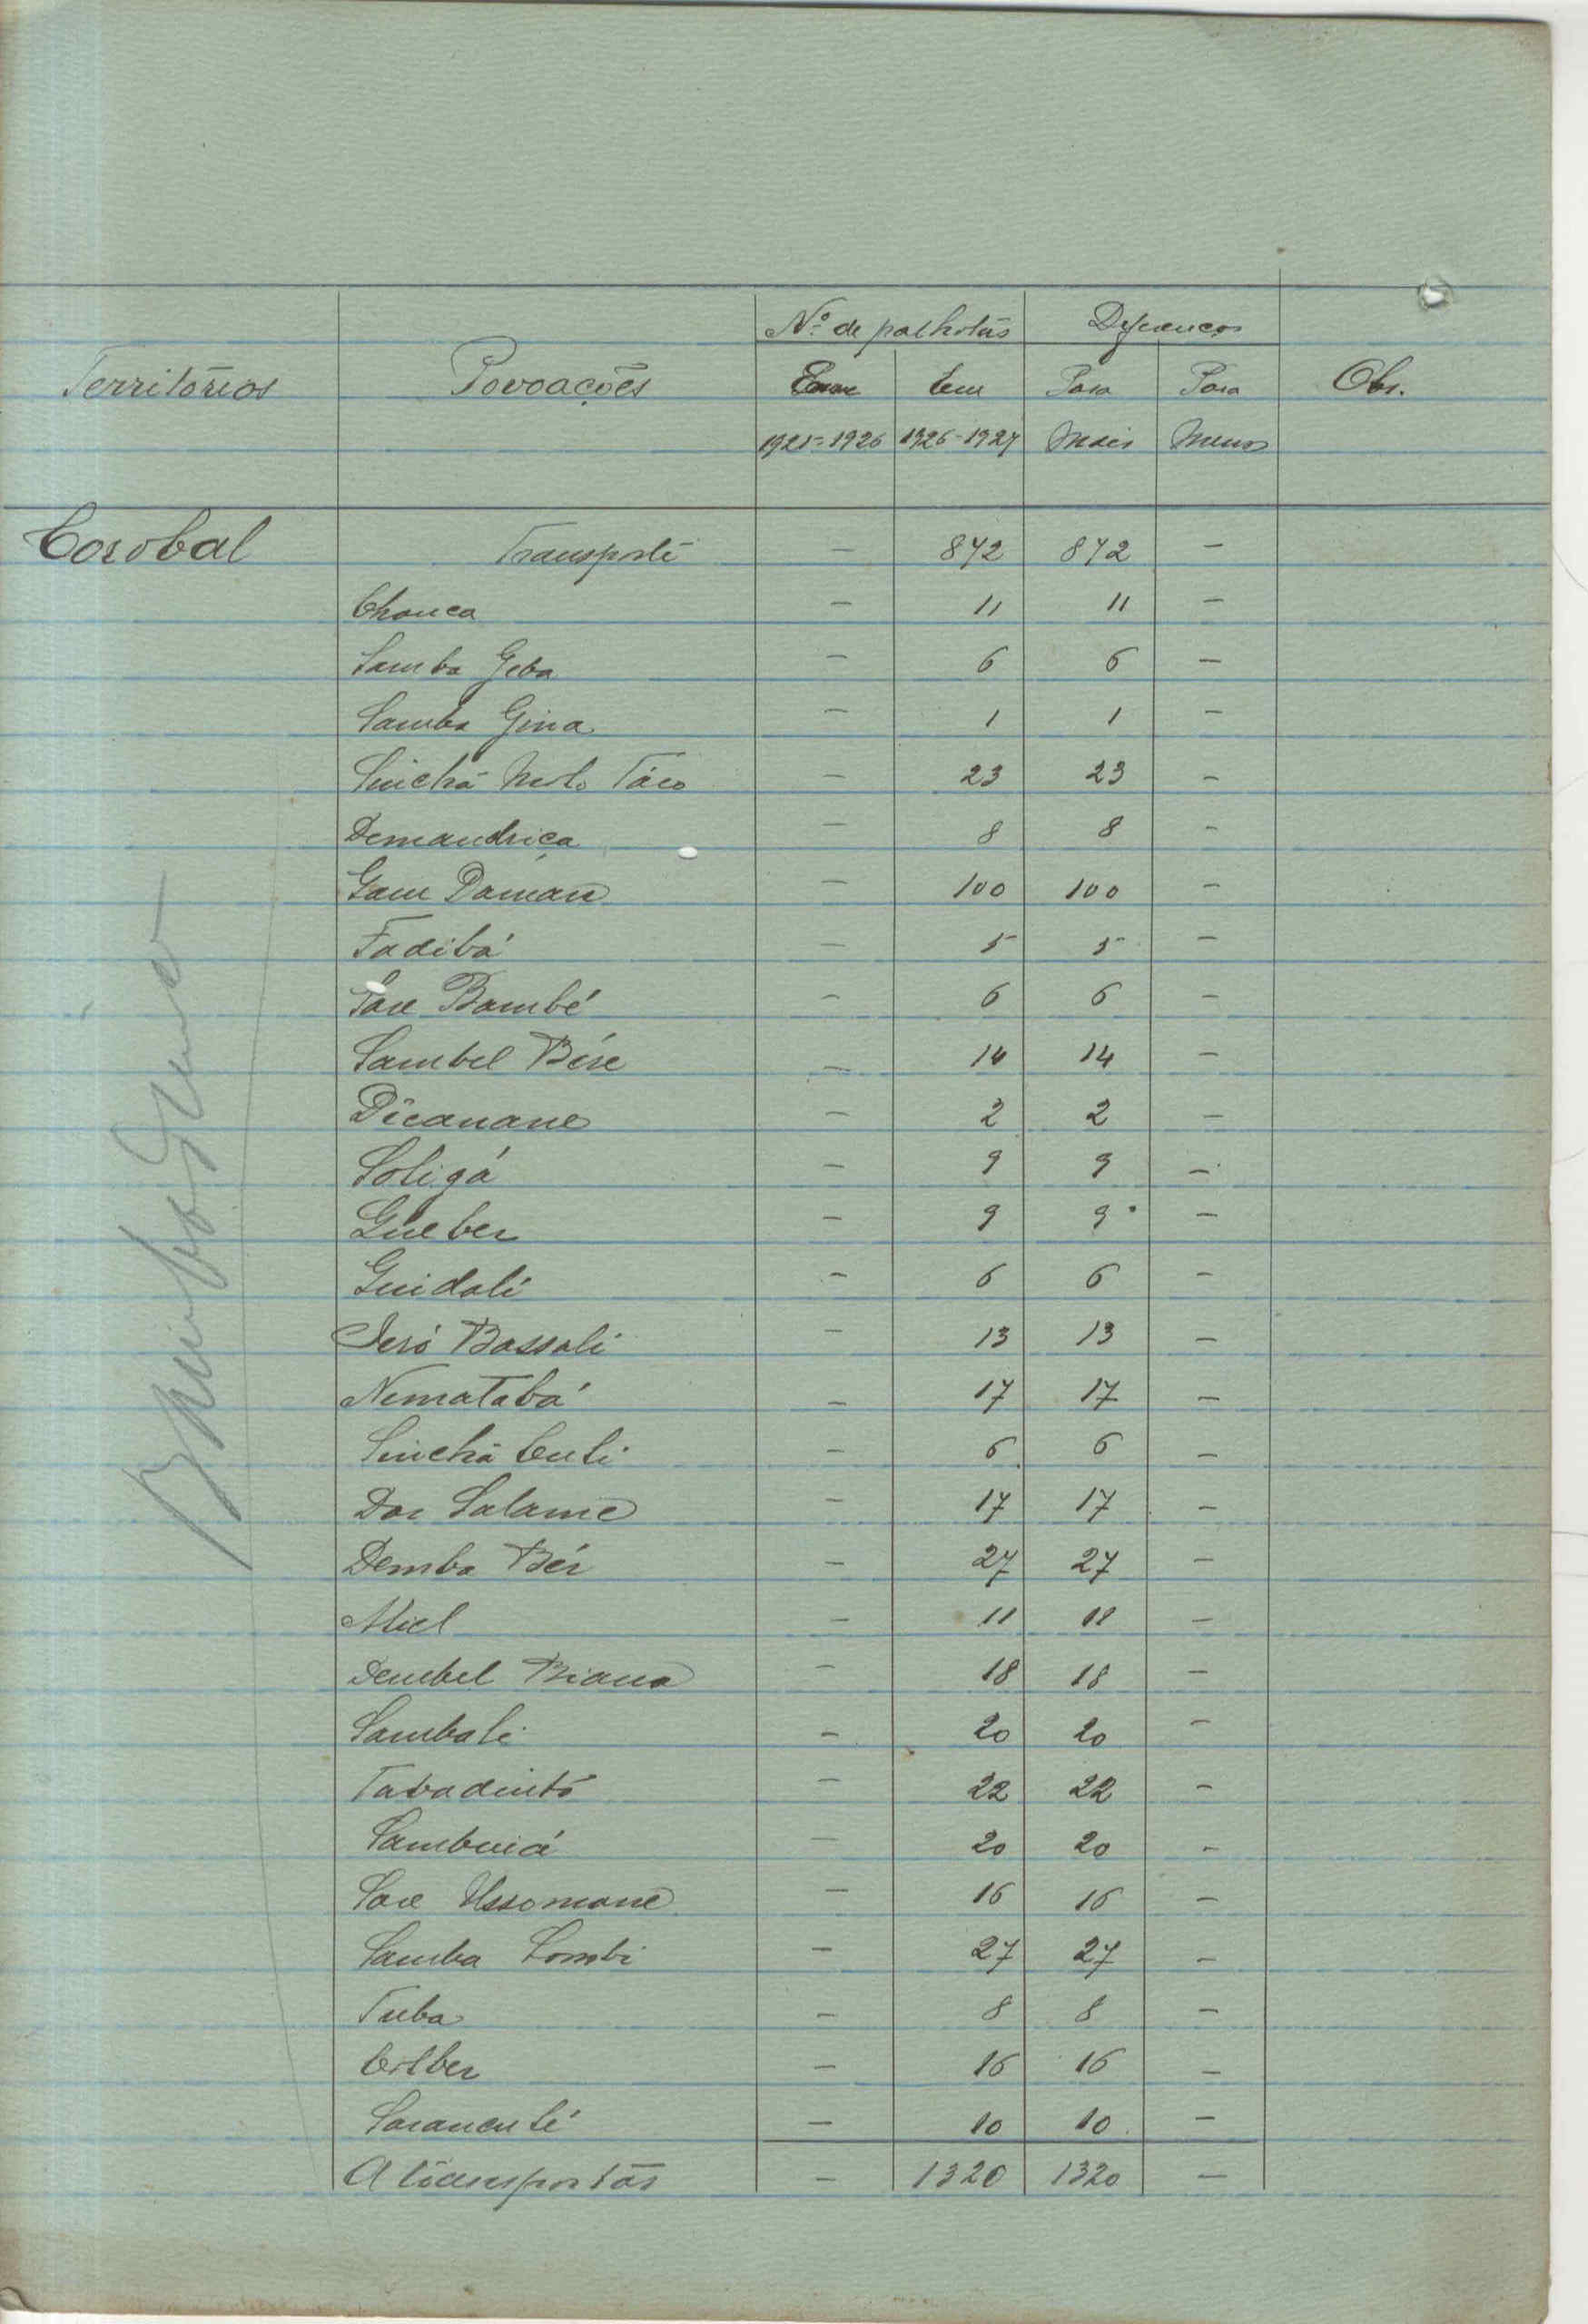 Nº de palhotas Diferenças
Territórios Povoações Em Em Para Para Obs.
1925-1926 1926-1927 Mais Menos
Corobal Transporte — 872 872 —
Chanca — 11 11 —
Samba Geba — 6 6 —
Samba Gina — 1 1 —
Sinchã Molo Táco — 23 23 —
Demandriça — 8 8 —
Gam Daman — 100 100 —
Fadibá — 5 5 —
Sare Bambé — 6 6 —
Sambel Bére — 14 14 —
Dicanane — 2 2 —
Soligá — 9 9 —
Gueber — 9 9 —
Guidali — 6 6 —
Seró Bassali — 13 13 —
Nematabá — 17 17 —
Sinchã Cuti — 6 6 —
Dar Salame — 17 17 —
Demba Bér — 27 27 —
Miel — 11 11 —
Dembel Biana — 18 18 —
Sambali — 20 20 —
Tabadintó — 22 22 —
Sambuiá — 20 20 —
Sare Ussomane — 16 16 —
Samba Lombi — 27 27 —
Tuba — 8 8 —
Colber — 16 16 —
Sarancule — 10 10 —
A transportar — 1320 1320 —